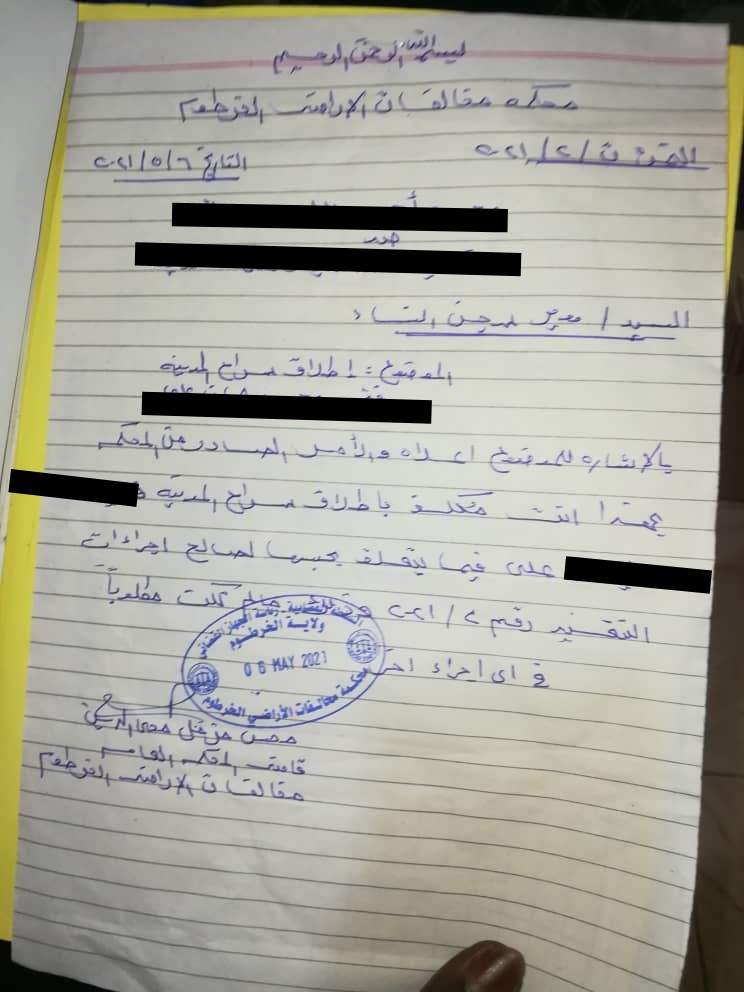 بسم الله الرحمن الرحيم
محكمه مخالفات الاراضي الخرطوم
النمرة ت/٢/٢٠٢١
التاريخ ٢٠٢١/٥/٦
ضد
السيد / مدير سجن النساء
الموضوع : إطلاق سراح المدينه
بالإشاره للموضوع اعلاه والأمر الصادر من المحكمه
بهذا انت مكلف بإطلاق سراح المدينه
على فيما يتعلق بحبسها لصالح اجراءات
التنفيذ رقم ٢٠٢١/٢ مالم تكن مطلوباً
في اى إجراء اخر
السلطة القضائية - رئاسة الجهاز القضائي
ولاية الخرطوم
06 MAY 2021
محكمة مخالفات الأراضي الخرطوم
محي الدين
قاضي المحكمه العامه
مخالفات الاراضي الخرطوم